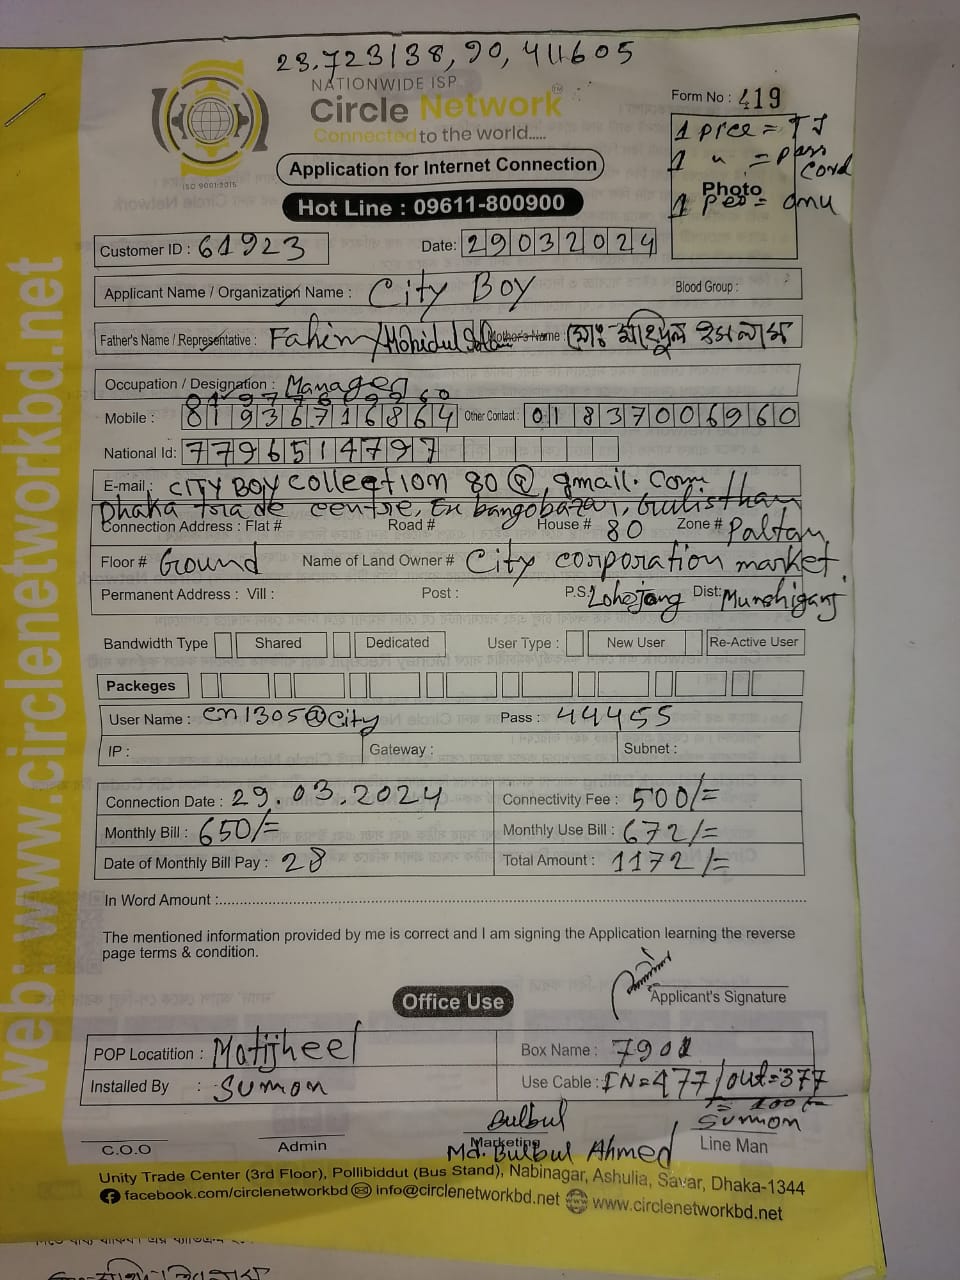 23.723138, 90, 411605
NATIONWIDE ISP
Circle Network™
Connected to the world.....
ISO 9001:2015
Application for Internet Connection
Hot Line : 09611-800900
Form No : 419
1 piece = TJ
1 " = pass cord
Photo
1 pes = onu
Customer ID : 61923
Date: 29032024
Applicant Name / Organization Name : City Boy
Blood Group :
Father's Name / Representative : Fahim / Mohidul Islam Mother's Name : মোঃ মহিদুল ইসলাম
Occupation / Designation : Manager
Mobile : 81936716864 Other Contact : 01837006960
National Id: 7796514797
E-mail : CITY BOY collection 80@gmail.com
Dhaka trade centre, Ex bangobazar, Gulisthan
Connection Address : Flat # Road # House # 80 Zone # Paltan
Floor # Ground Name of Land Owner # City corporation market.
Permanent Address : Vill : Post : P.S. Lohojong Dist: Munshiganj
Bandwidth Type Shared Dedicated User Type : New User Re-Active User
Packeges
User Name : cn1305@city Pass : 44455
IP : Gateway : Subnet :
Connection Date : 29.03.2024 Connectivity Fee : 500/=
Monthly Bill : 650/= Monthly Use Bill : 672/=
Date of Monthly Bill Pay : 28 Total Amount : 1172/=
In Word Amount :
The mentioned information provided by me is correct and I am signing the Application learning the reverse
page terms & condition.
Applicant's Signature
Office Use
POP Locatition : Motijheel Box Name : 7901
Installed By : Sumon Use Cable : IN=477/out=377
Bulbul
Sumon
C.O.O Admin Marketing Line Man
Md. Bulbul Ahmed
Unity Trade Center (3rd Floor), Pollibiddut (Bus Stand), Nabinagar, Ashulia, Savar, Dhaka-1344
facebook.com/circlenetworkbd info@circlenetworkbd.net www.circlenetworkbd.net
web: www.circlenetworkbd.net